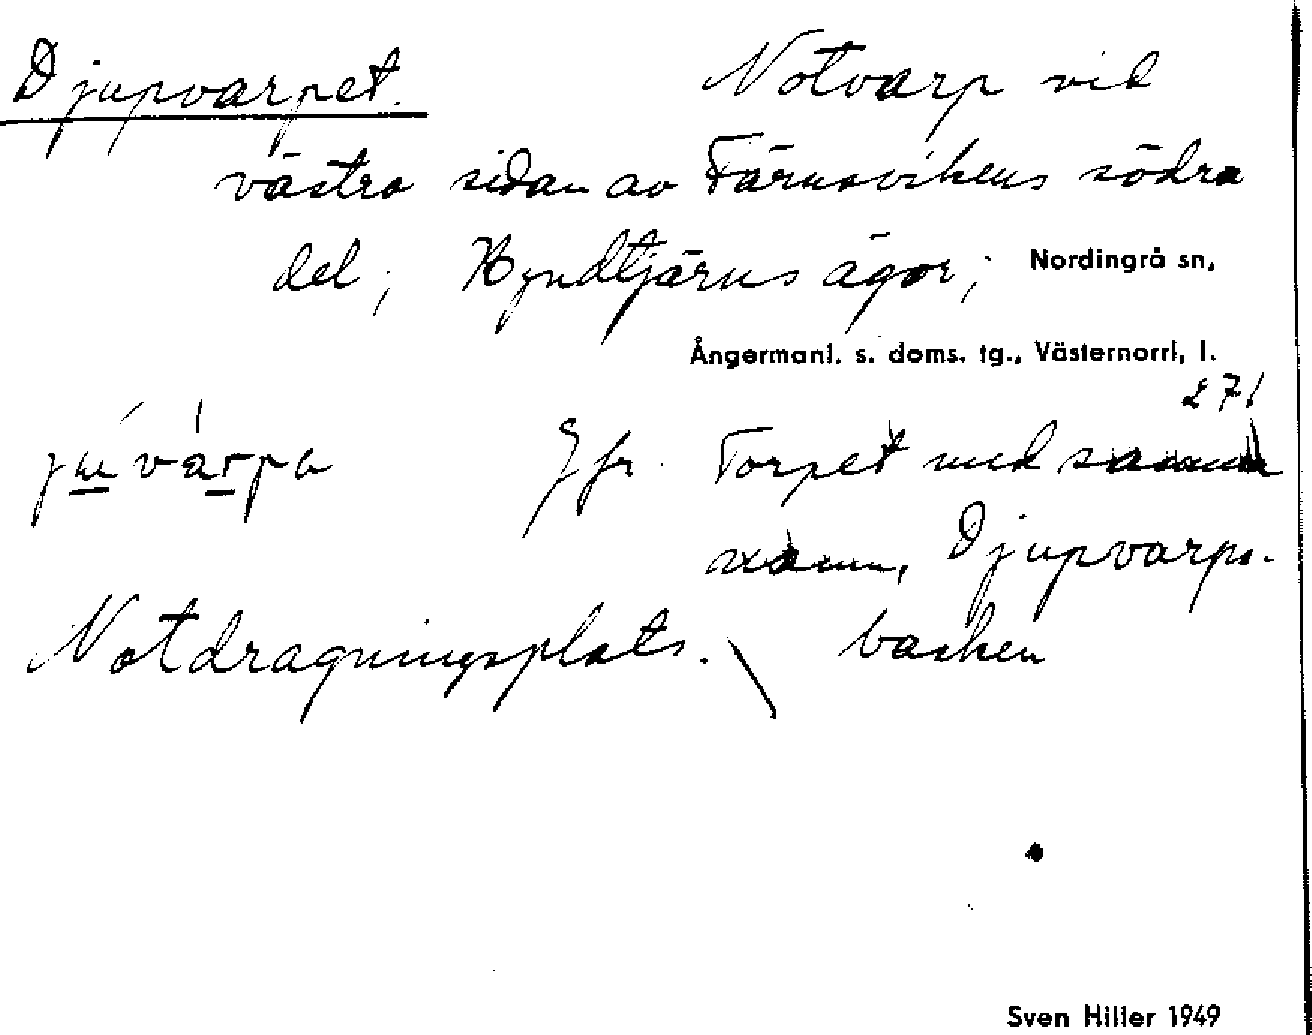 Djupvarpet. Notvarp vid
västra sidan av Färnsvikens södra
del; Hyndtjärns ägor; Nordingrå sn,
Ångermanl. s. doms. tg., Västernorrl. l.
271
Jfr. Torpet med samma
namn, Djupvarps-
Notdragningsplats. backen
Sven Hiller 1949